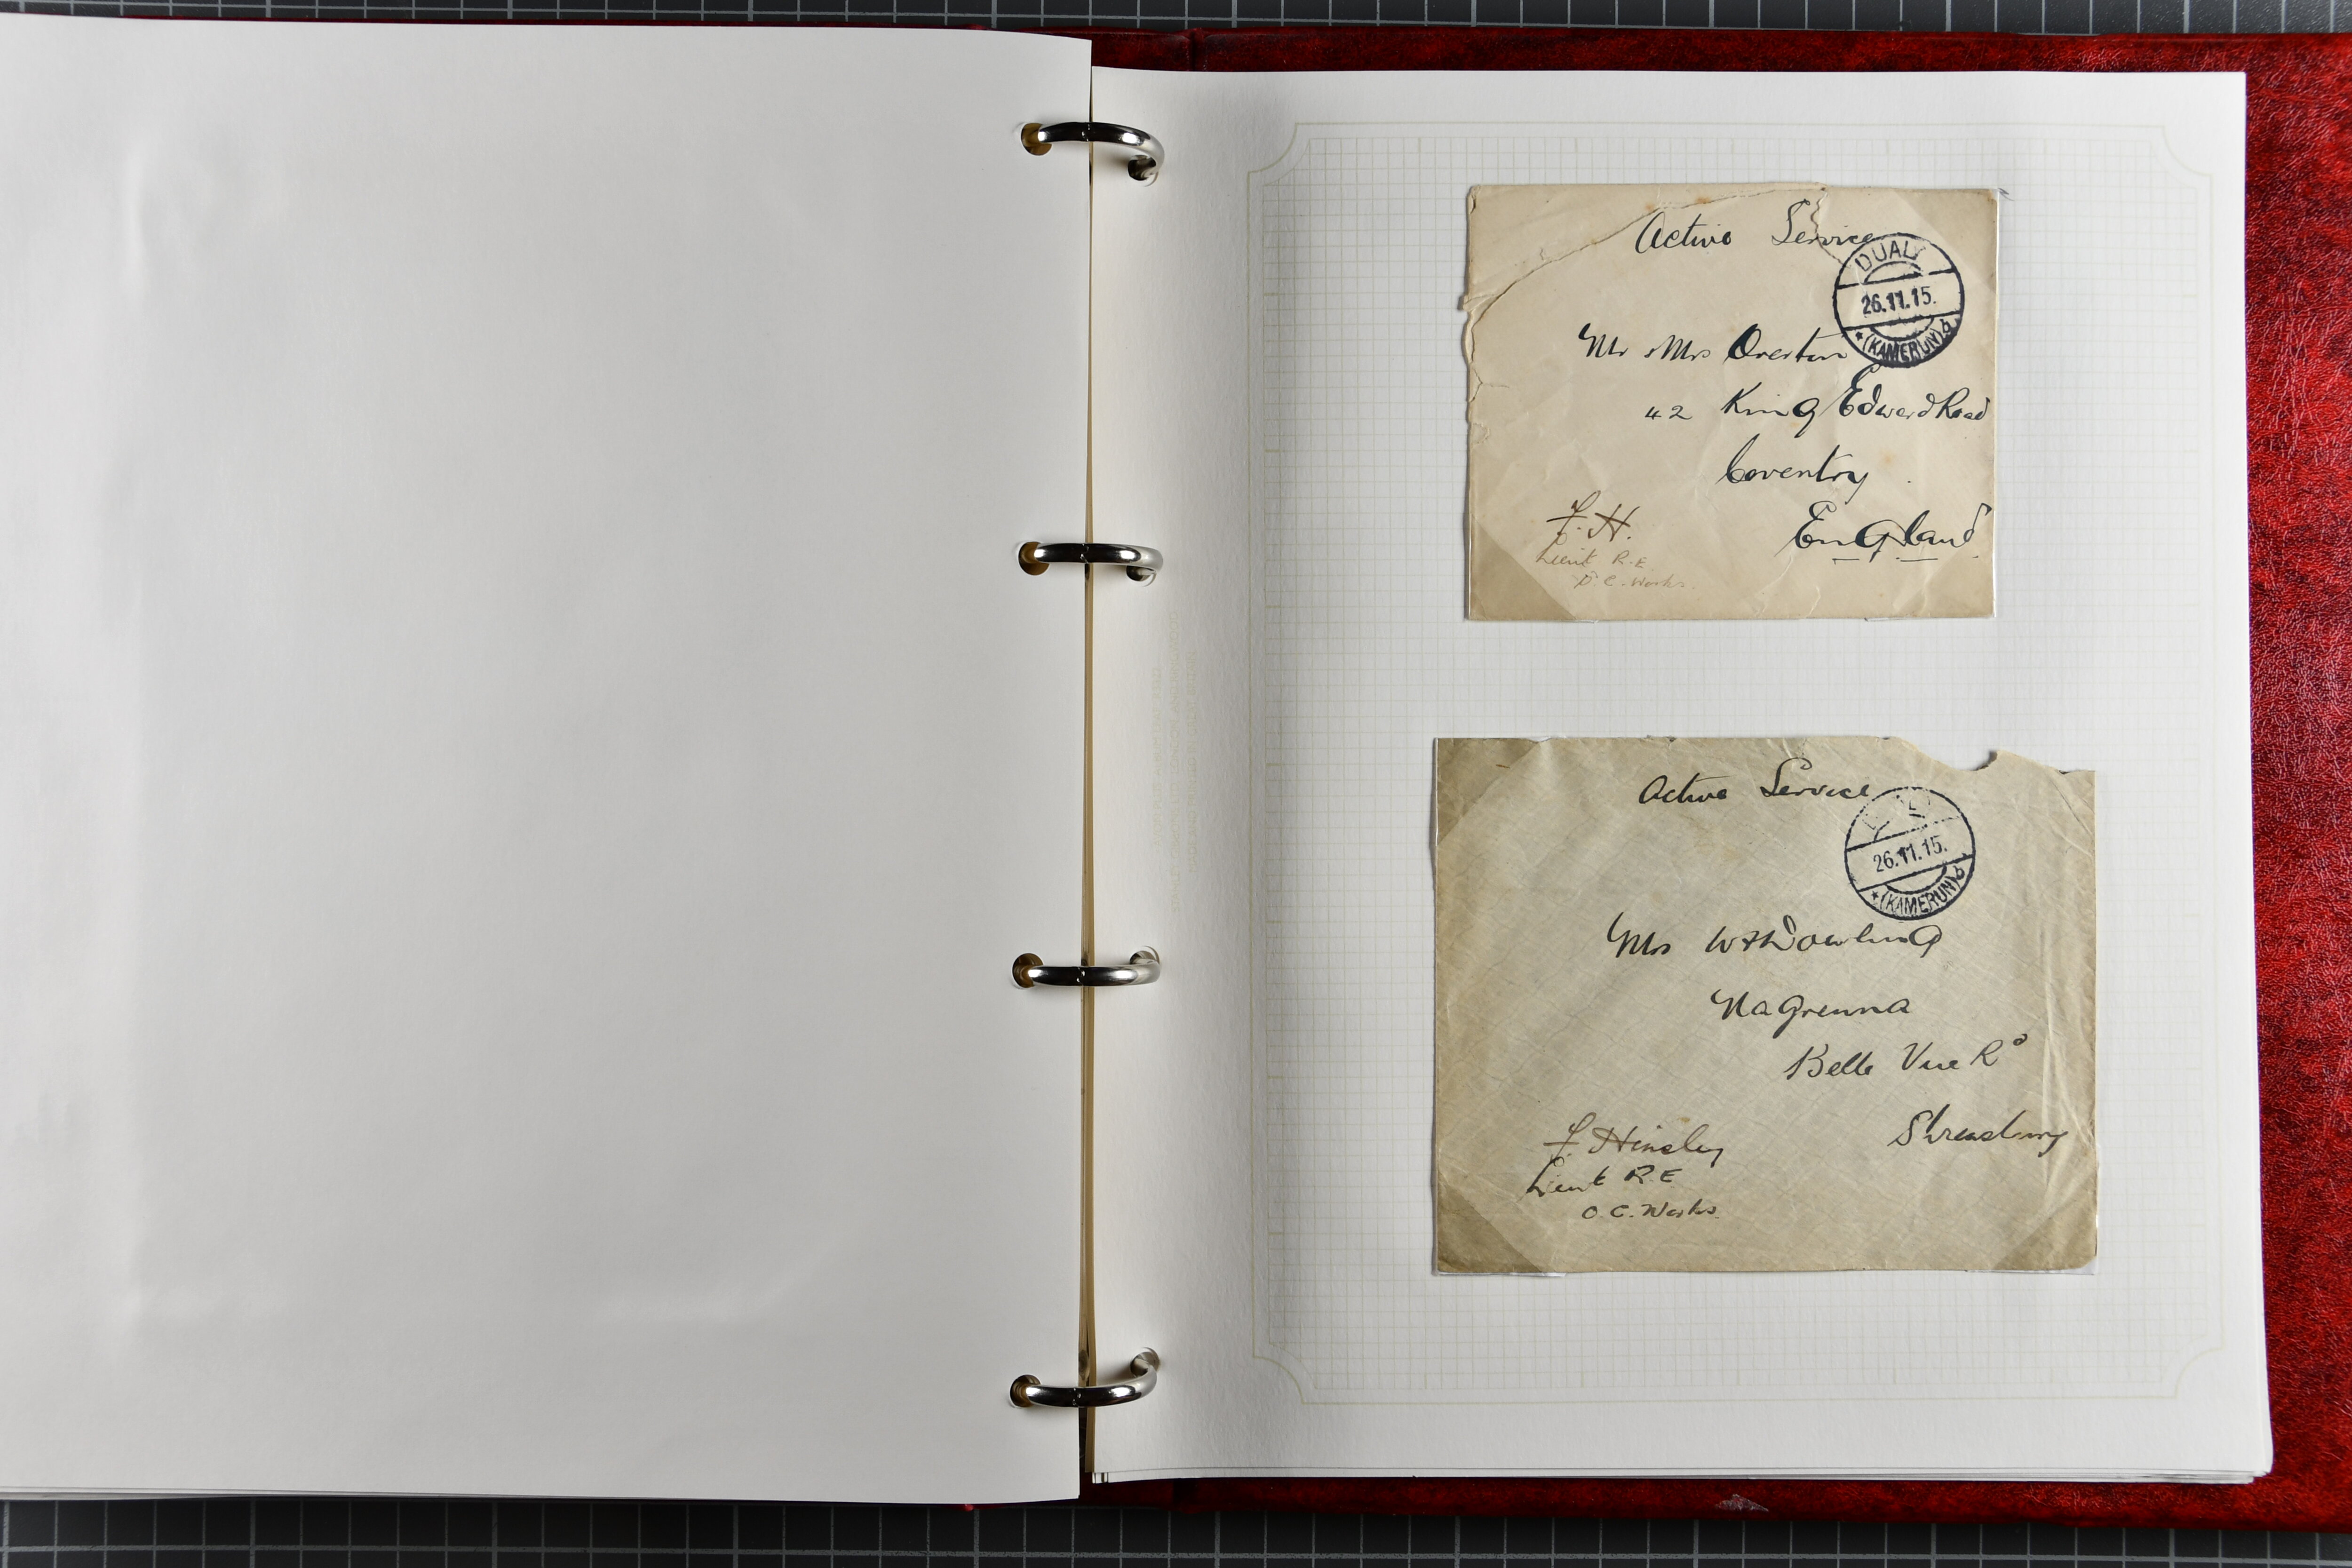 Active Service
DUALA
26.11.15.
*(KAMERUN)b
Mr & Mrs Overton
42 King Edward Road
Coventry
England
F.H.
Lieut R.E.
O.C. Works.
Active Service
26.11.15.
*(KAMERUN)b
Mrs W H Dowling
Nagrenna
Belle Vue Rd
Shrewsbury
F. Hinsley
Lieut R.E
O.C. Works.